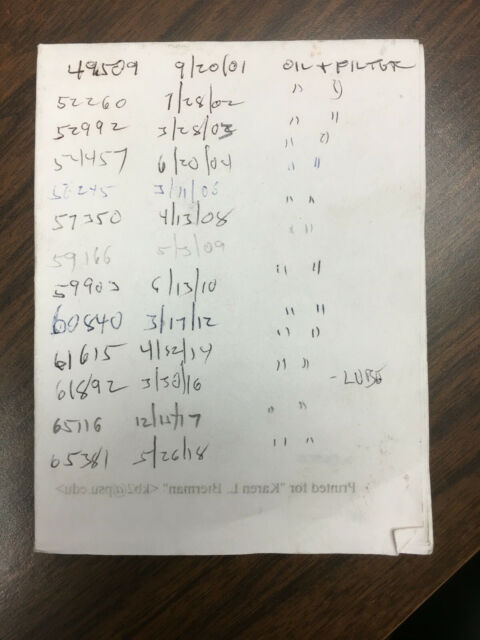 49509 9/20/01 OIL + FILTER
52260 7/28/02 " "
52992 3/28/03 " "
54457 6/20/04 " "
3/11/06 " "
57350 4/13/08 " "
59166 5/3/09 " "
59903 6/13/10 " "
60840 3/17/12 " "
61615 4/12/14 " "
61892 3/30/16 " " - LUBE
65116 12/12/17 " "
65381 5/26/18 " "
Printed for "Karen L. Bierman" <kb2@psu.edu>